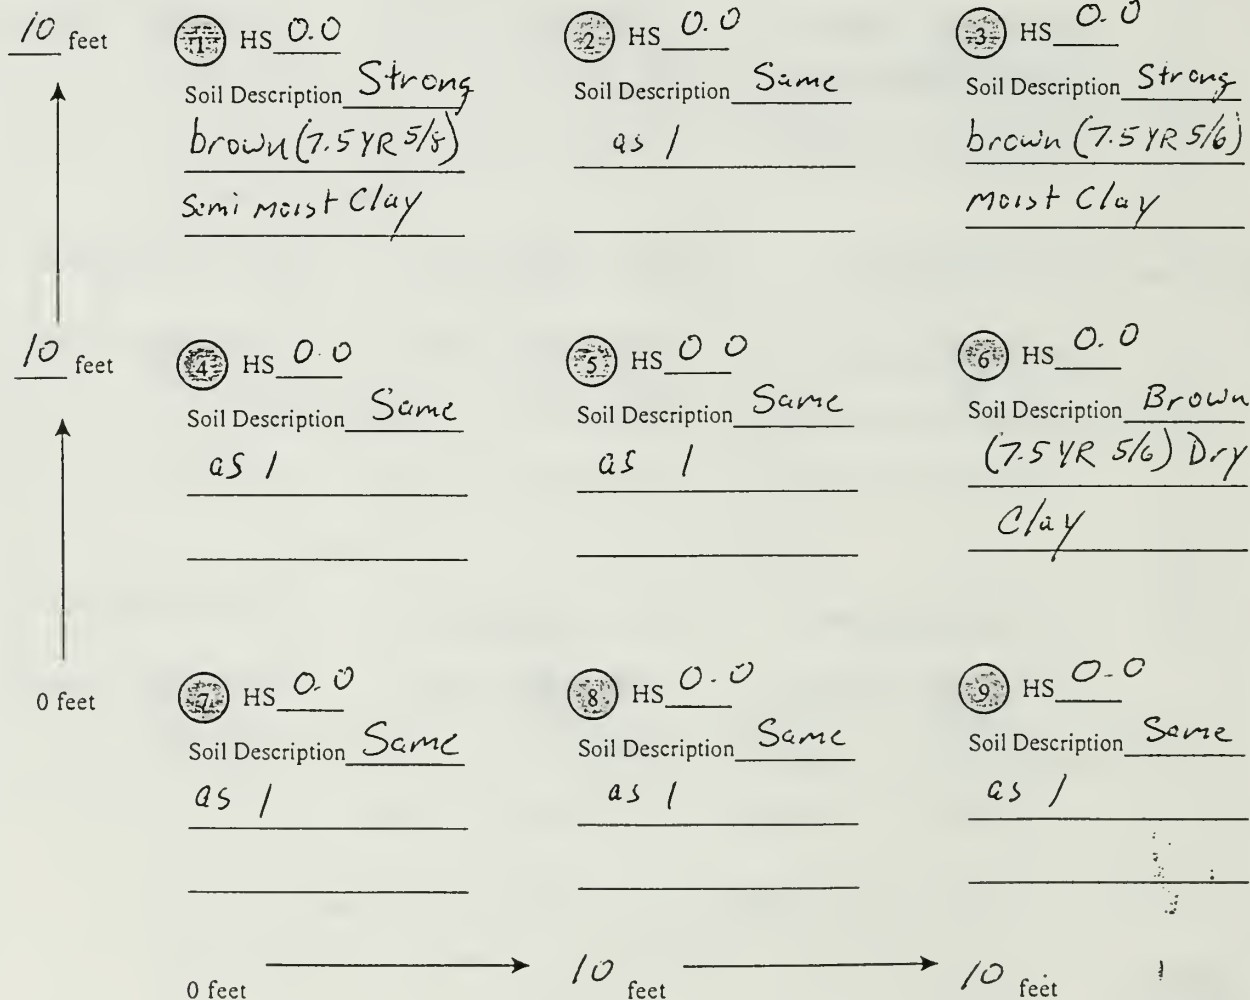 10 feet
1 HS 0.0
Soil Description Strong
brown (7.5 YR 5/8)
Semi moist Clay
2 HS 0.0
Soil Description Same
as 1
3 HS 0.0
Soil Description Strong
brown (7.5 YR 5/6)
moist Clay
10 feet
4 HS 0.0
Soil Description Same
as 1
5 HS 0 0
Soil Description Same
as 1
6 HS 0.0
Soil Description Brown
(7.5 YR 5/6) Dry
Clay
0 feet
7 HS 0.0
Soil Description Same
as 1
8 HS 0.0
Soil Description Same
as 1
9 HS 0.0
Soil Description Same
as 1
0 feet
10 feet
10 feet